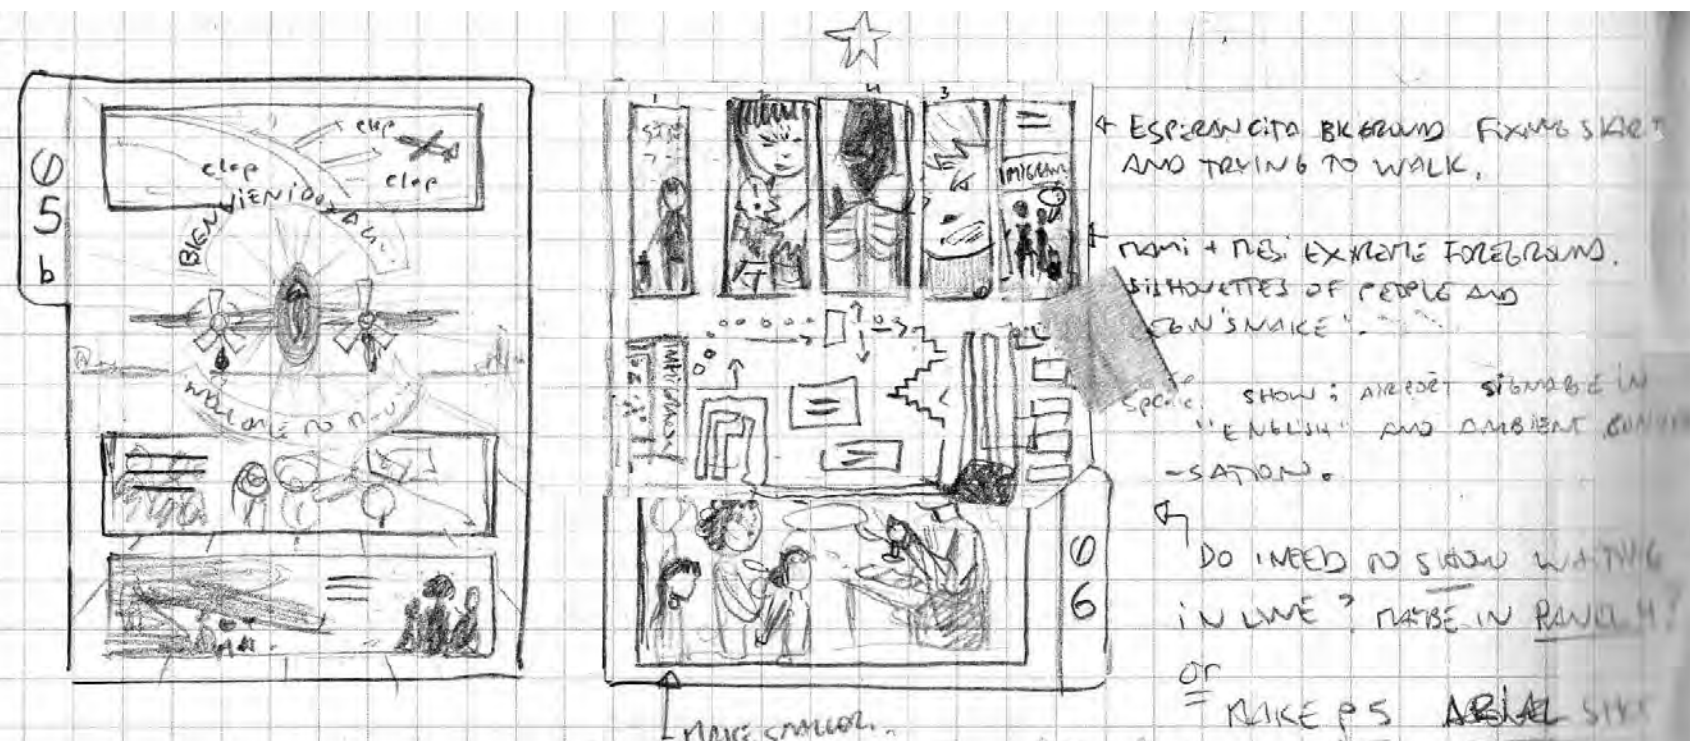 05
b
clap
clap
clap
BIENVENIDOS A
WELCOME TO
1
2
4
3
IMIGRA
IMMIGRATION
06
MAKE SMALLER.
ESPERANCITA BKGROUND FIXING SKIRT
AND TRYING TO WALK.
MAMI + MESI EXTREME FOREGROUND.
SILHOUETTES OF PEOPLE AND
"SNAKE".
SHOW: AIRPORT SIGNAGE IN
"ENGLISH" AND AMBIENT
-SATION.
DO I NEED TO SHOW WAITING
IN LINE? MAYBE IN PANEL 4?
or
MAKE P5 AERIAL